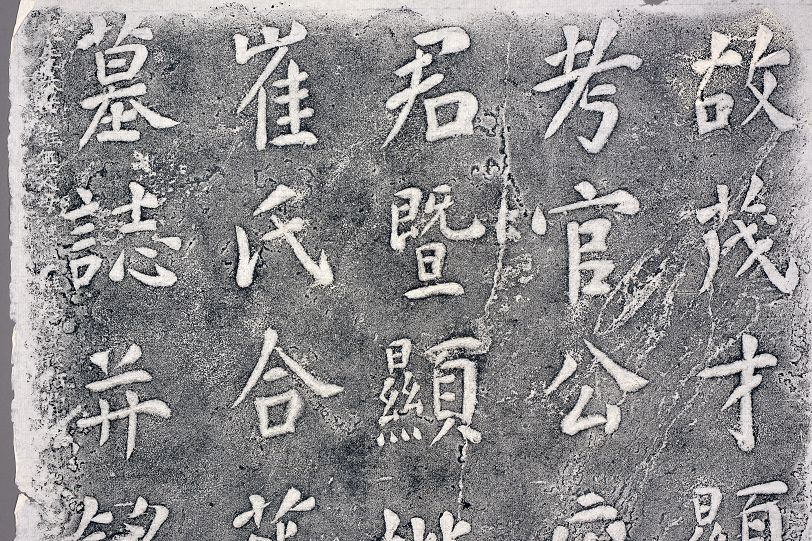 故茂才顯
考官公府
君暨顯繼
崔氏合葬
墓誌并銘